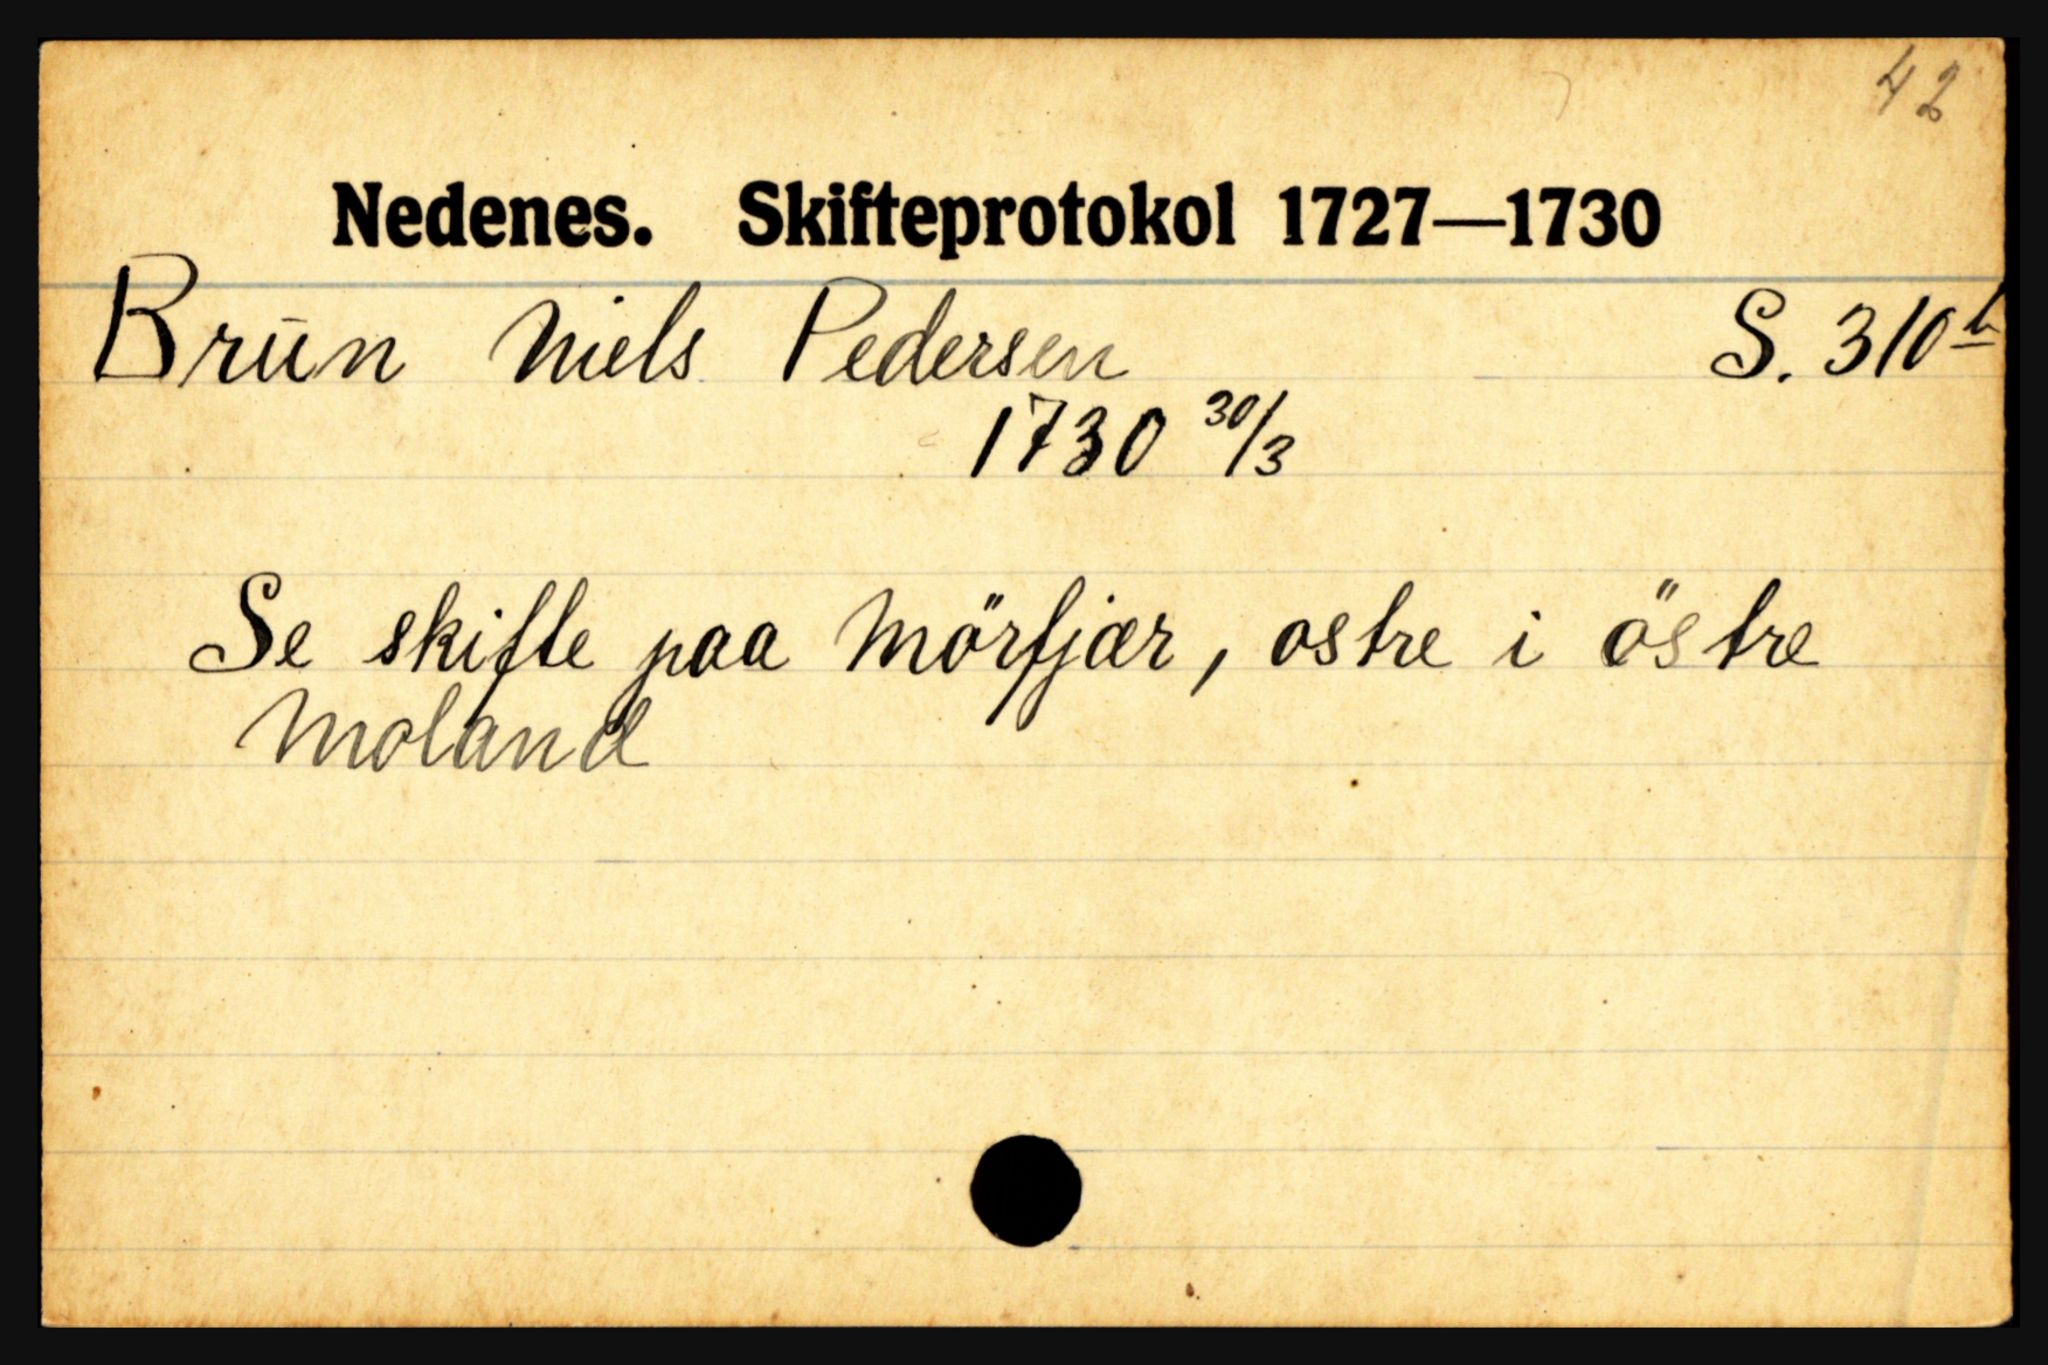 42
Nedenes. Skifteprotokol 1727—1730
Brūn Niels Pedersen S. 310b
1730 30/3
Se skifte paa Mörfjær, ostre i östre
Moland